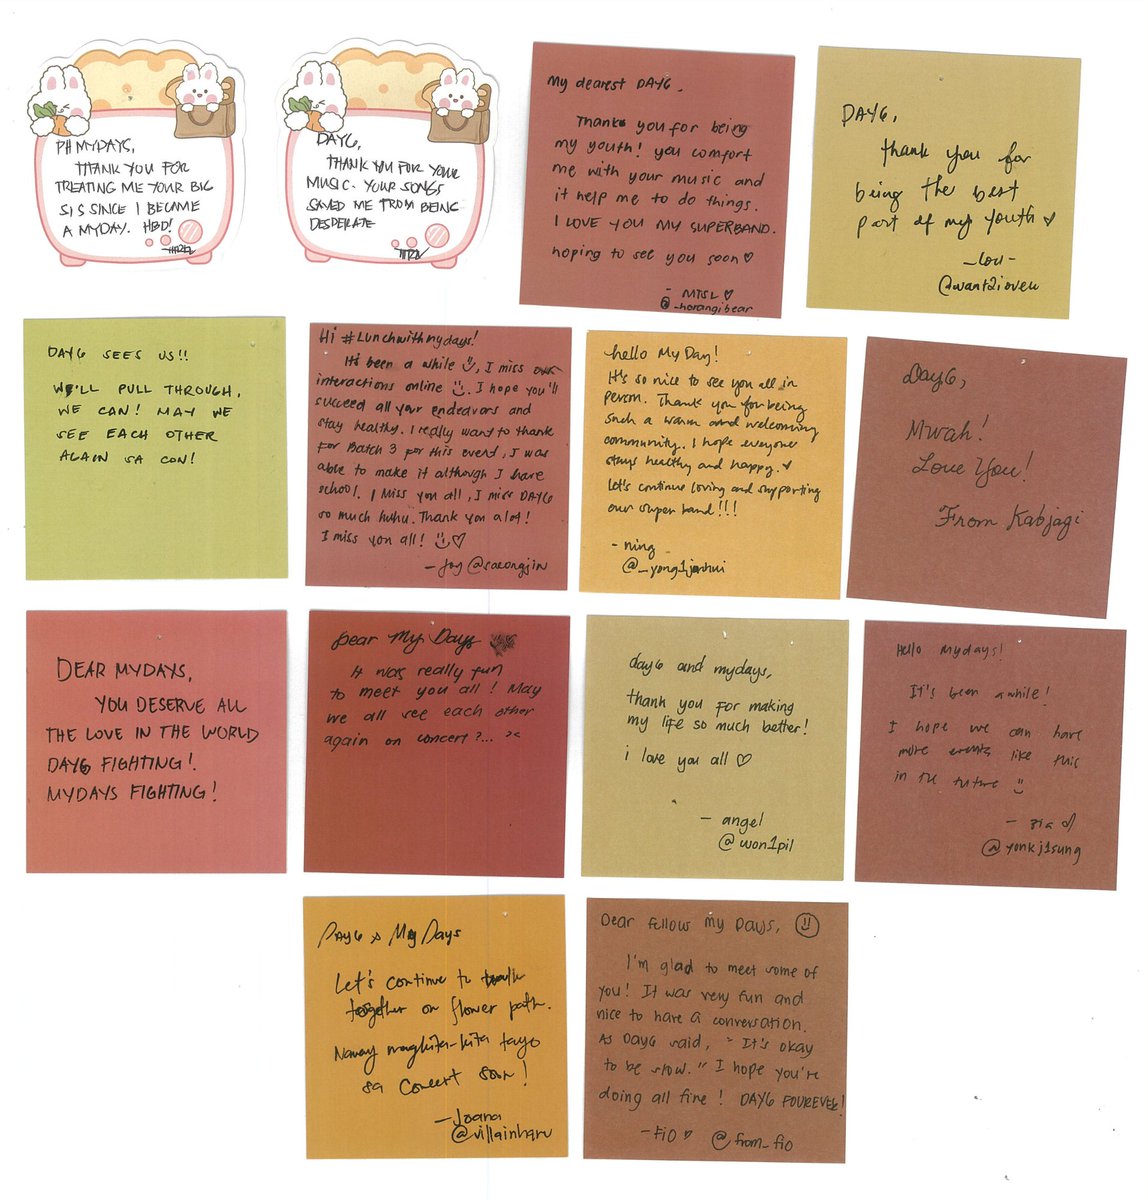 PH MYDAYS,
THANK YOU FOR
TREATING ME YOUR BIG
SIS SINCE I BECAME
A MYDAY. HBD!
DAY6,
THANK YOU FOR YOUR
MUSIC. YOUR SONGS
SAVED ME FROM BEING
DESPERATE
My dearest DAY6,
Thank you for being
my youth! you comfort
me with your music and
it help me to do things.
I LOVE YOU MY SUPERBAND.
hoping to see you soon ♡
- MTSL ♡
@_horangibear
DAY6,
thank you for
being the best
part of my youth ♡
- Lou -
@want2ioveu
DAY6 SEES US!!
WE'LL PULL THROUGH,
WE CAN! MAY WE
SEE EACH OTHER
AGAIN SA CON!
Hi #Lunchwithmydays!
It's been a while, I miss our
interactions online. I hope you'll
succeed all your endeavors and
stay healthy. I really want to thank
for Batch 3 for this event, I was
able to make it although I have
school. I Miss you all, I miss DAY6
so much huhu. Thank you a lot!
I miss you all! ♡
- Joy @caeongjin
hello My Day!
It's so nice to see you all in
person. Thank you for being
such a warm and welcoming
community. I hope everyone
stays healthy and happy. ♥
Let's continue loving and supporting
our super band!!!
- ning
@_yong1junhui
Day6,
Mwah!
Love You!
From Kabjagi
DEAR MYDAYS,
YOU DESERVE ALL
THE LOVE IN THE WORLD
DAY6 FIGHTING!
MYDAYS FIGHTING!
Dear My Days
It was really fun
to meet you all! May
we all see each other
again on concert?... ><
day6 and mydays,
thank you for making
my life so much better!
i love you all ♡
- angel
@won1pil
Hello Mydays!
It's been awhile!
I hope we can have
more events like this
in the future
- zia
@yonkj1sung
DAY6 x My Days
Let's continue to walk
together on flower path.
Naway magkita-kita tayo
sa concert soon!
- Joana
@villainharu
Dear fellow My Days,
I'm glad to meet some of
you! It was very fun and
nice to have a conversation.
As DAY6 said, "It's okay
to be slow." I hope you're
doing all fine! DAY6 FOUREVER!
- Fio ♡ @from_fio